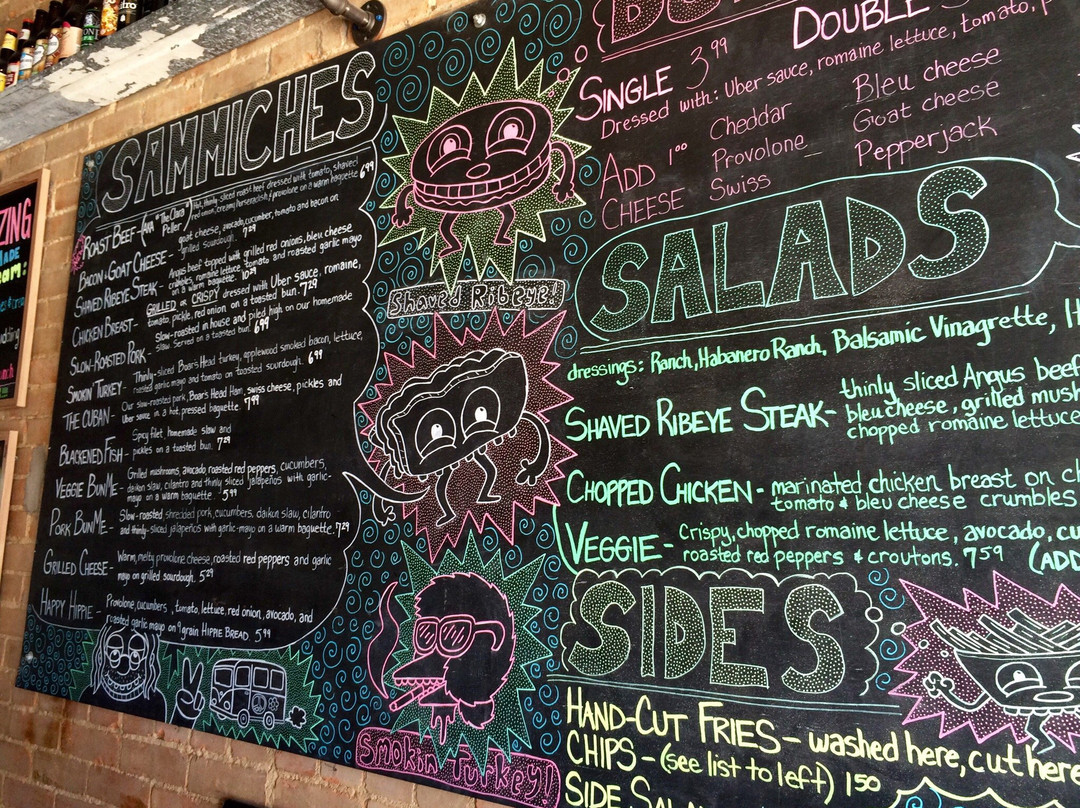 SAMMICHES
ROAST BEEF - (AKA "The Clara Peller") Hot, thinly-sliced roast beef dressed with tomato, shaved
red onion, creamy horseradish & provolone on a warm baguette 6 99
BACON & GOAT CHEESE - goat cheese, avocado, cucumber, tomato and bacon on
grilled sourdough. 7 29
SHAVED RIBEYE STEAK - Angus beef topped with grilled red onions, bleu cheese
crumbles, romaine lettuce, tomato and roasted garlic mayo
on a warm baguette. 10 29
CHICKEN BREAST - GRILLED or CRISPY dressed with Uber sauce, romaine,
tomato, pickle, red onion on a toasted bun. 7 29
SLOW-ROASTED PORK - Slow-roasted in house and piled high on our homemade
slaw. Served on a toasted bun. 6 99
SMOKIN' TURKEY - Thinly-sliced Boar's Head turkey, applewood smoked bacon, lettuce,
roasted garlic mayo and tomato on toasted sourdough. 6 99
THE CUBAN - Our slow-roasted pork, Boar's Head Ham, swiss cheese, pickles and
Uber sauce in a hot, pressed baguette. 7 99
BLACKENED FISH - Spicy filet, homemade slaw and
pickles on a toasted bun. 7 29
VEGGIE BUNME - Grilled mushrooms, avocado, roasted red peppers, cucumbers,
daikon slaw, cilantro and thinly sliced jalapeños with garlic-
mayo on a warm baguette. 5 99
PORK BUNME - Slow-roasted shredded pork, cucumbers, daikon slaw, cilantro
and thinly-sliced jalapeños with garlic-mayo on a warm baguette. 7 29
GRILLED CHEESE - Warm, melty provolone cheese, roasted red peppers and garlic
mayo on grilled sourdough. 5 29
HAPPY HIPPIE - Provolone, cucumbers, tomato, lettuce, red onion, avocado, and
roasted garlic mayo on 9 grain HIPPIE BREAD 5 99
Shaved Ribeye!
Smokin' Turkey!
SINGLE 3 99
DOUBLE
Dressed with: Uber sauce, romaine lettuce, tomato,
ADD 1 00
CHEESE
Cheddar
Provolone
Swiss
Bleu cheese
Goat cheese
Pepperjack
SALADS
dressings: Ranch, Habanero Ranch, Balsamic Vinagrette,
SHAVED RIBEYE STEAK - thinly sliced Angus beef
bleu cheese, grilled mush
chopped romaine lettuce
CHOPPED CHICKEN - marinated chicken breast on
tomato & bleu cheese crumbles
VEGGIE - Crispy, chopped romaine lettuce, avocado, cu
roasted red peppers & croutons. 7 59 (ADD
SIDES
HAND-CUT FRIES - washed here, cut here
CHIPS - (see list to left) 1 50
SIDE SALAD